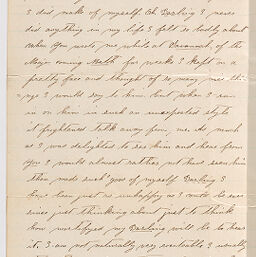 I did make of myself. Oh Darling I never
did anything in my life I felt so badly about
when you wrote me while at Savannah, of the
Major coming North for weeks I kept on a
pretty face and thought of so many nice thi-
ngs I would say to him. but when I ran
in on him in such an unexpected style
it frightened talk away from me. As much
as I was delighted to see him and hear from
you I would almost rather not have seen him
than made such of myself Darling I
have been just as unhappy as I could be ever
since just thinking about just to think
how mortified my Darling will be to hear
it. I am not naturally very excitable I usually